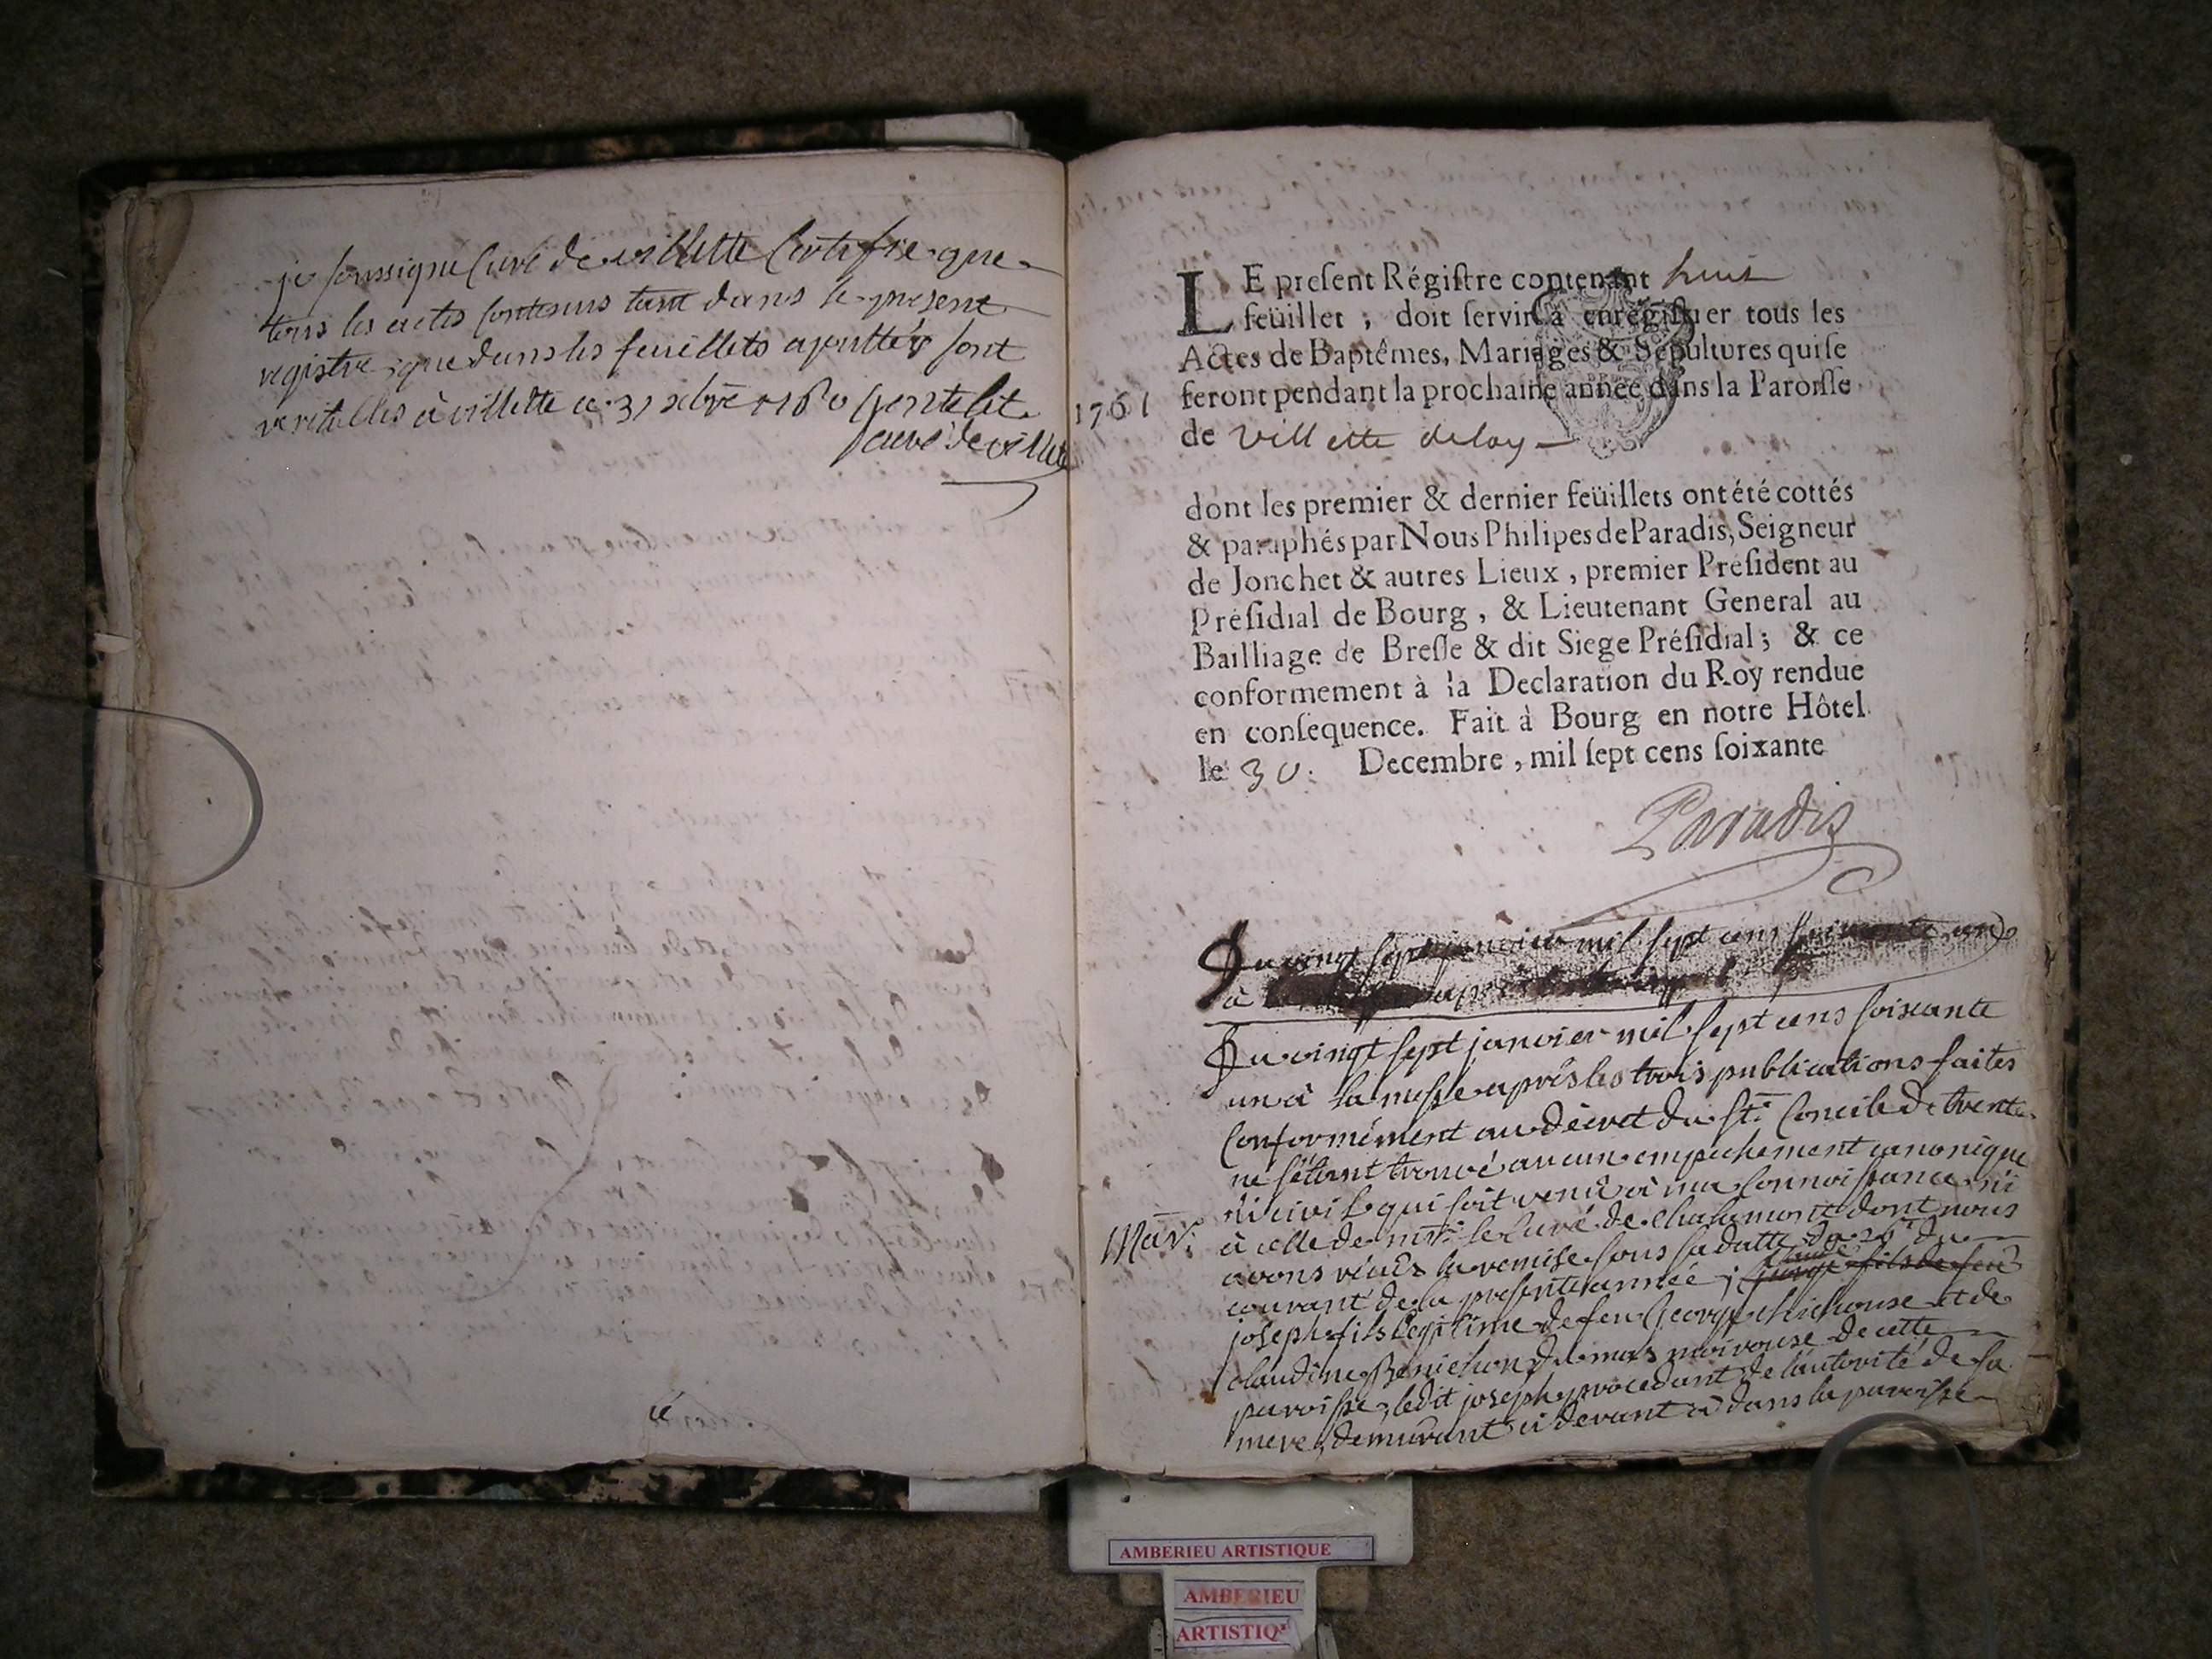 je soussigné Curé de villette Certifie que
tous les actes Contenus tant dans le present
registre que dans les feuillets ajouttés sont
veritables à villette ce 31 xbre 1760 Gentelet
curé de villette
ce
1761
LE present Régistre contenant huit
feüillet ; doit servir à enrégistrer tous les
Actes de Baptêmes, Mariages & Sépultures qui se
feront pendant la prochaine année dans la Paroisse
de Villette deloy
dont les premier & dernier feüillets ont été cottés
& paraphés par Nous Philipes de Paradis, Seigneur
de Jonchet & autres Lieux, premier President au
Présidial de Bourg, & Lieutenant General au
Bailliage de Bresse & dit Siege Présidial; & ce
conformement à la Declaration du Roy rendue
en consequence. Fait à Bourg en notre Hôtel
le 30. Decembre, mil sept cens soixante
Paradis
Du vingt sept janvier mil sept cens soixante un
à
Du vingt sept janvier mil sept cens soixante
un à la messe après les trois publications faites
Conformément au décret du st. Concile de trente
ne s'étant trouvé aucun empechement canonique
ni civil qui soit venû à ma Connoissance ni
Mar:
à celle de mr. le Curé de Chalamont dont nous
avons réçû la remise sous sa datte du 26 du
courant de la presente année ; fils de feu
joseph fils légitime de feu George chichouse et de
claudine Benichon du mas noirouse de cette
paroisse, ledit joseph procedant de l'autorité de sa
mere, demeurant ci devant dans la paroisse
AMBERIEU ARTISTIQUE
AMBERIEU
ARTISTIQ